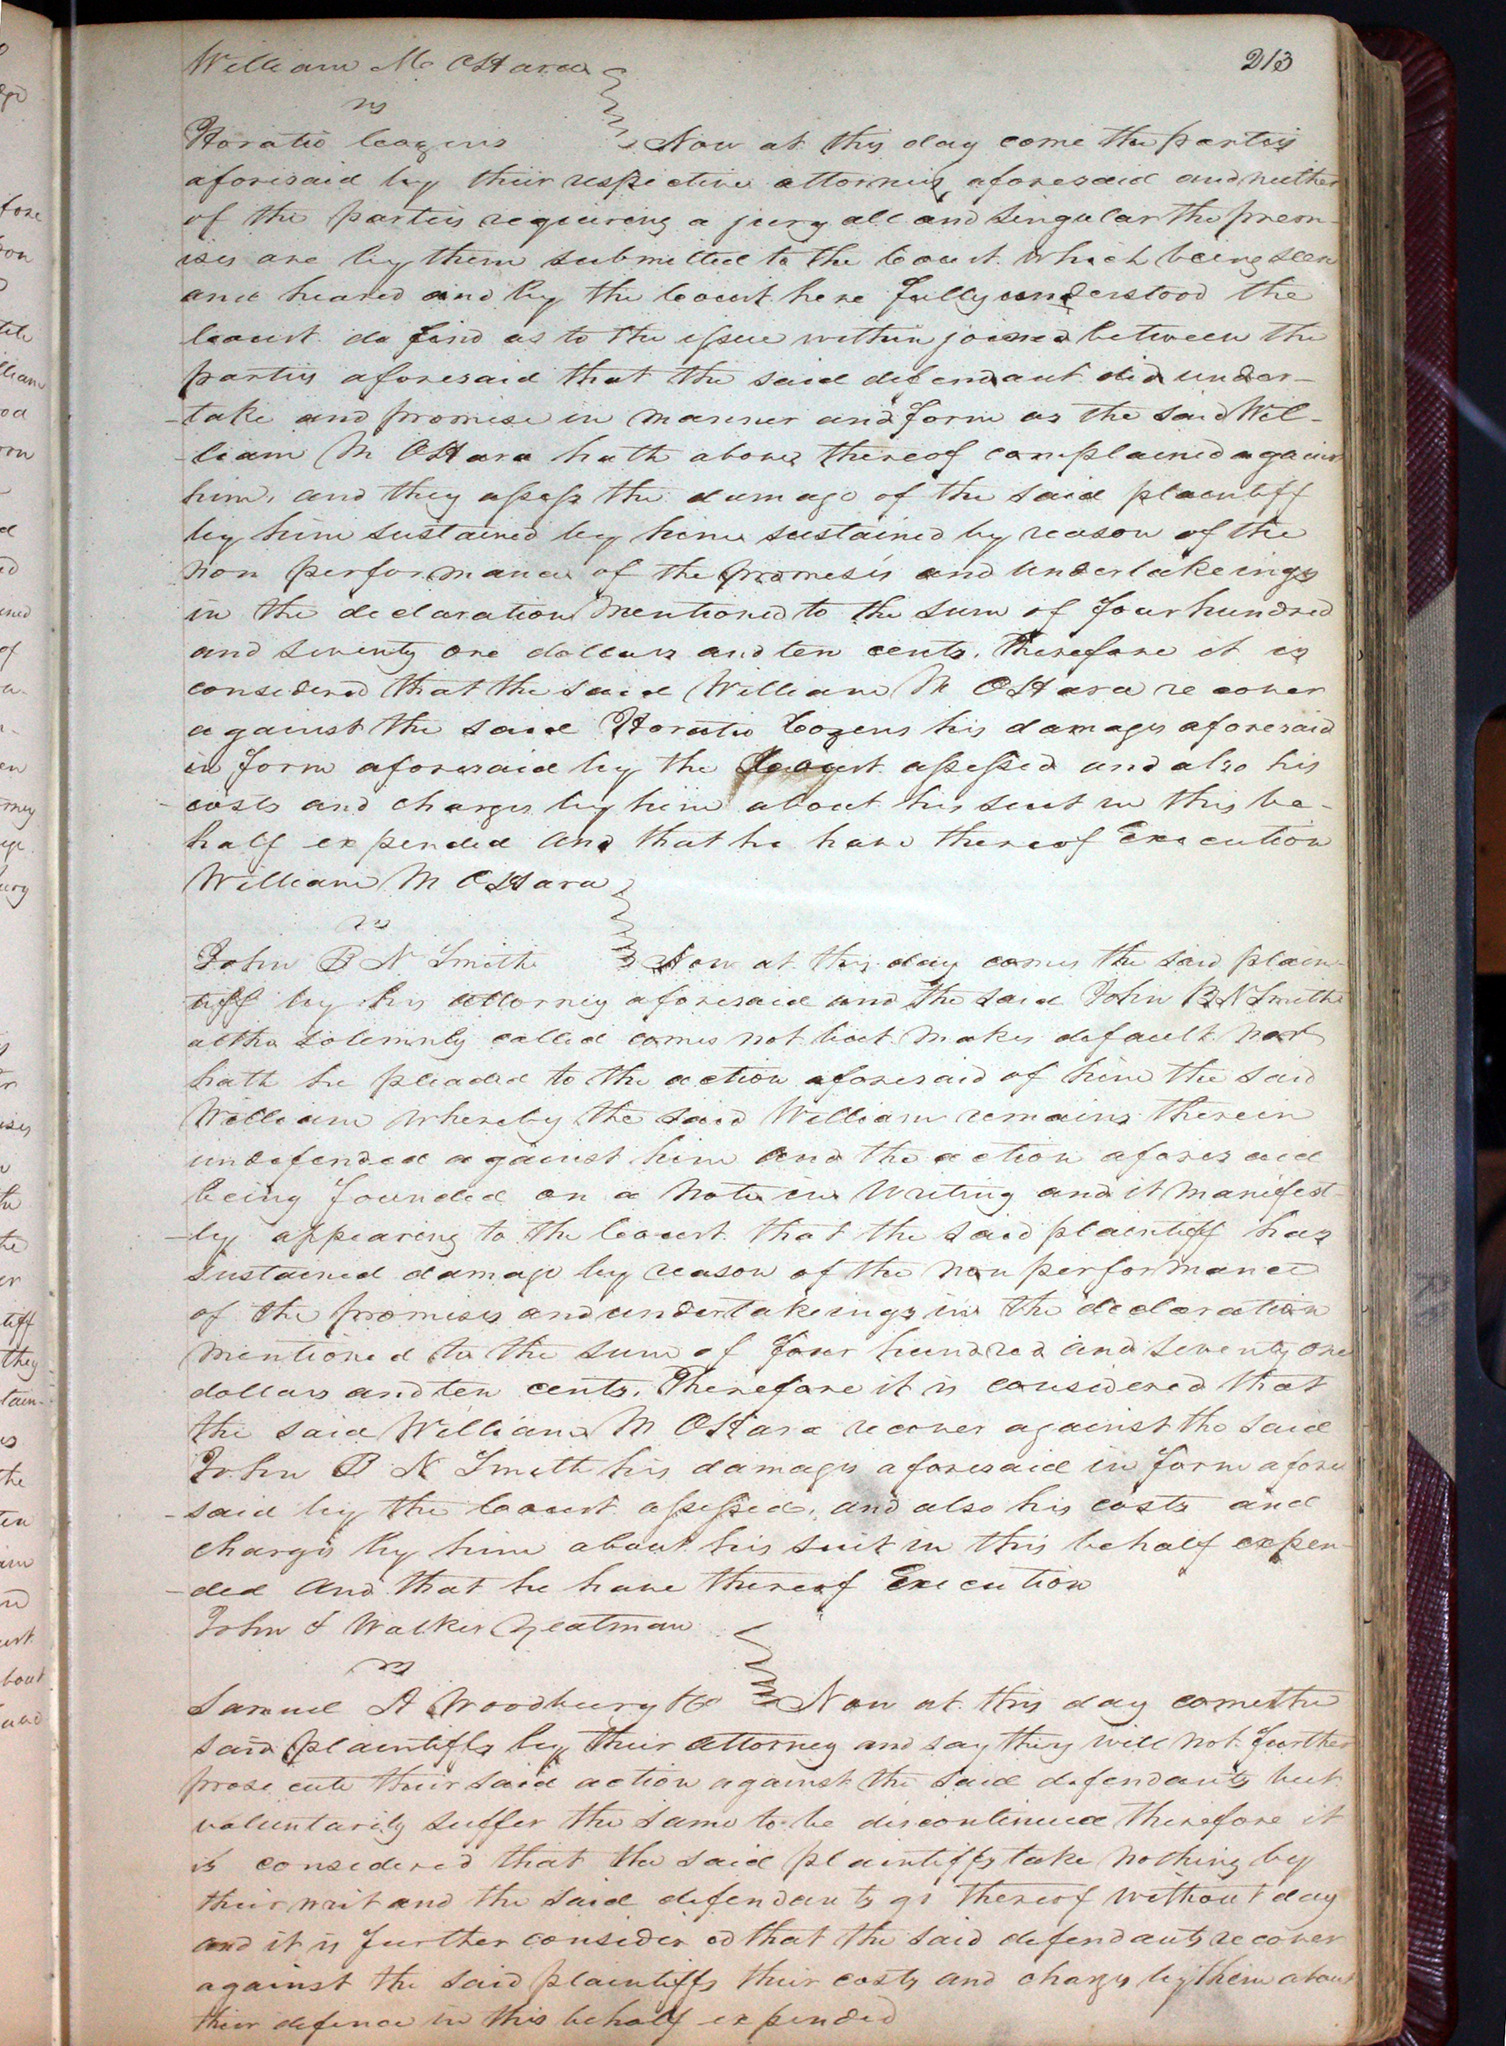 213
William M OHara
vs
Horatio Cozens Now at this day come the parties
aforesaid by their respective attorneys aforesaid and neither
of the parties requiring a jury all and singular the prem-
ises are by them submitted to the Court which being seen
and heared and by the Court here fully understood the
Court do find as to the issue within joined between the
parties aforesaid that the said defendant did under-
-take and promise in manner and form as the said Wil-
-liam M OHara hath above thereof complained against
him, and they assess the damage of the said plaintiff
by him sustained by him sustained by reason of the
non performance of the promises and undertakeings
in the declaration mentioned to the sum of four hundred
and seventy one dollars and ten cents. Therefore it is
considered that the said William M OHara recover
against the said Horatio Cozens his damages aforesaid
in form aforesaid by the Court assessed and also his
-costs and charges by him about his suit in this be-
half expended and that he have thereof Execution
William M OHara
vs
John B N Smith Now at this day comes the said plain-
tiff by his attorney aforesaid and the said John B N Smith
altho solemnly called comes not but makes default nor
hath he pleaded to the action aforesaid of him the said
William whereby the said William remains therein
undefended against him and the action aforesaid
being founded on a note in writing and it manifest-
-ly appearing to the Court that the said plaintiff has
sustained damage by reason of the non performance
of the promises and undertakeings in the declaration
mentioned to the sum of four hundred and seventy one
dollars and ten cents. Therefore it is considered that
the said William M OHara recover against the said
John B N Smith his damages aforesaid in form afore
-said by the Court assessed, and also his costs and
charges by him about his suit in this behalf expen-
-ded and that he have thereof Execution
John & Walker Yeatman
vs
Samuel A Woodbury &Co Now at this day come the
said plaintiffs by their attorney and say they will not further
prosecute their said action against the said defendants but
voluntarily suffer the same to be discontinued therefore it
is considered that the said plaintiffs take nothing by
their writ and the said defendants go thereof without day
and it is further considered that the said defendants recover
against the said plaintiffs their costs and charges by them about
their defence in this behalf expended